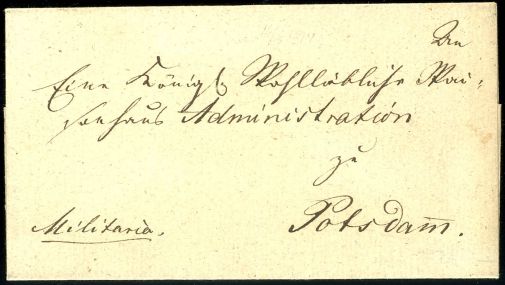 An
Eine Königl Wohllöbliche Wai-
senhaus Administration
zu
Potsdam.
Militaria.